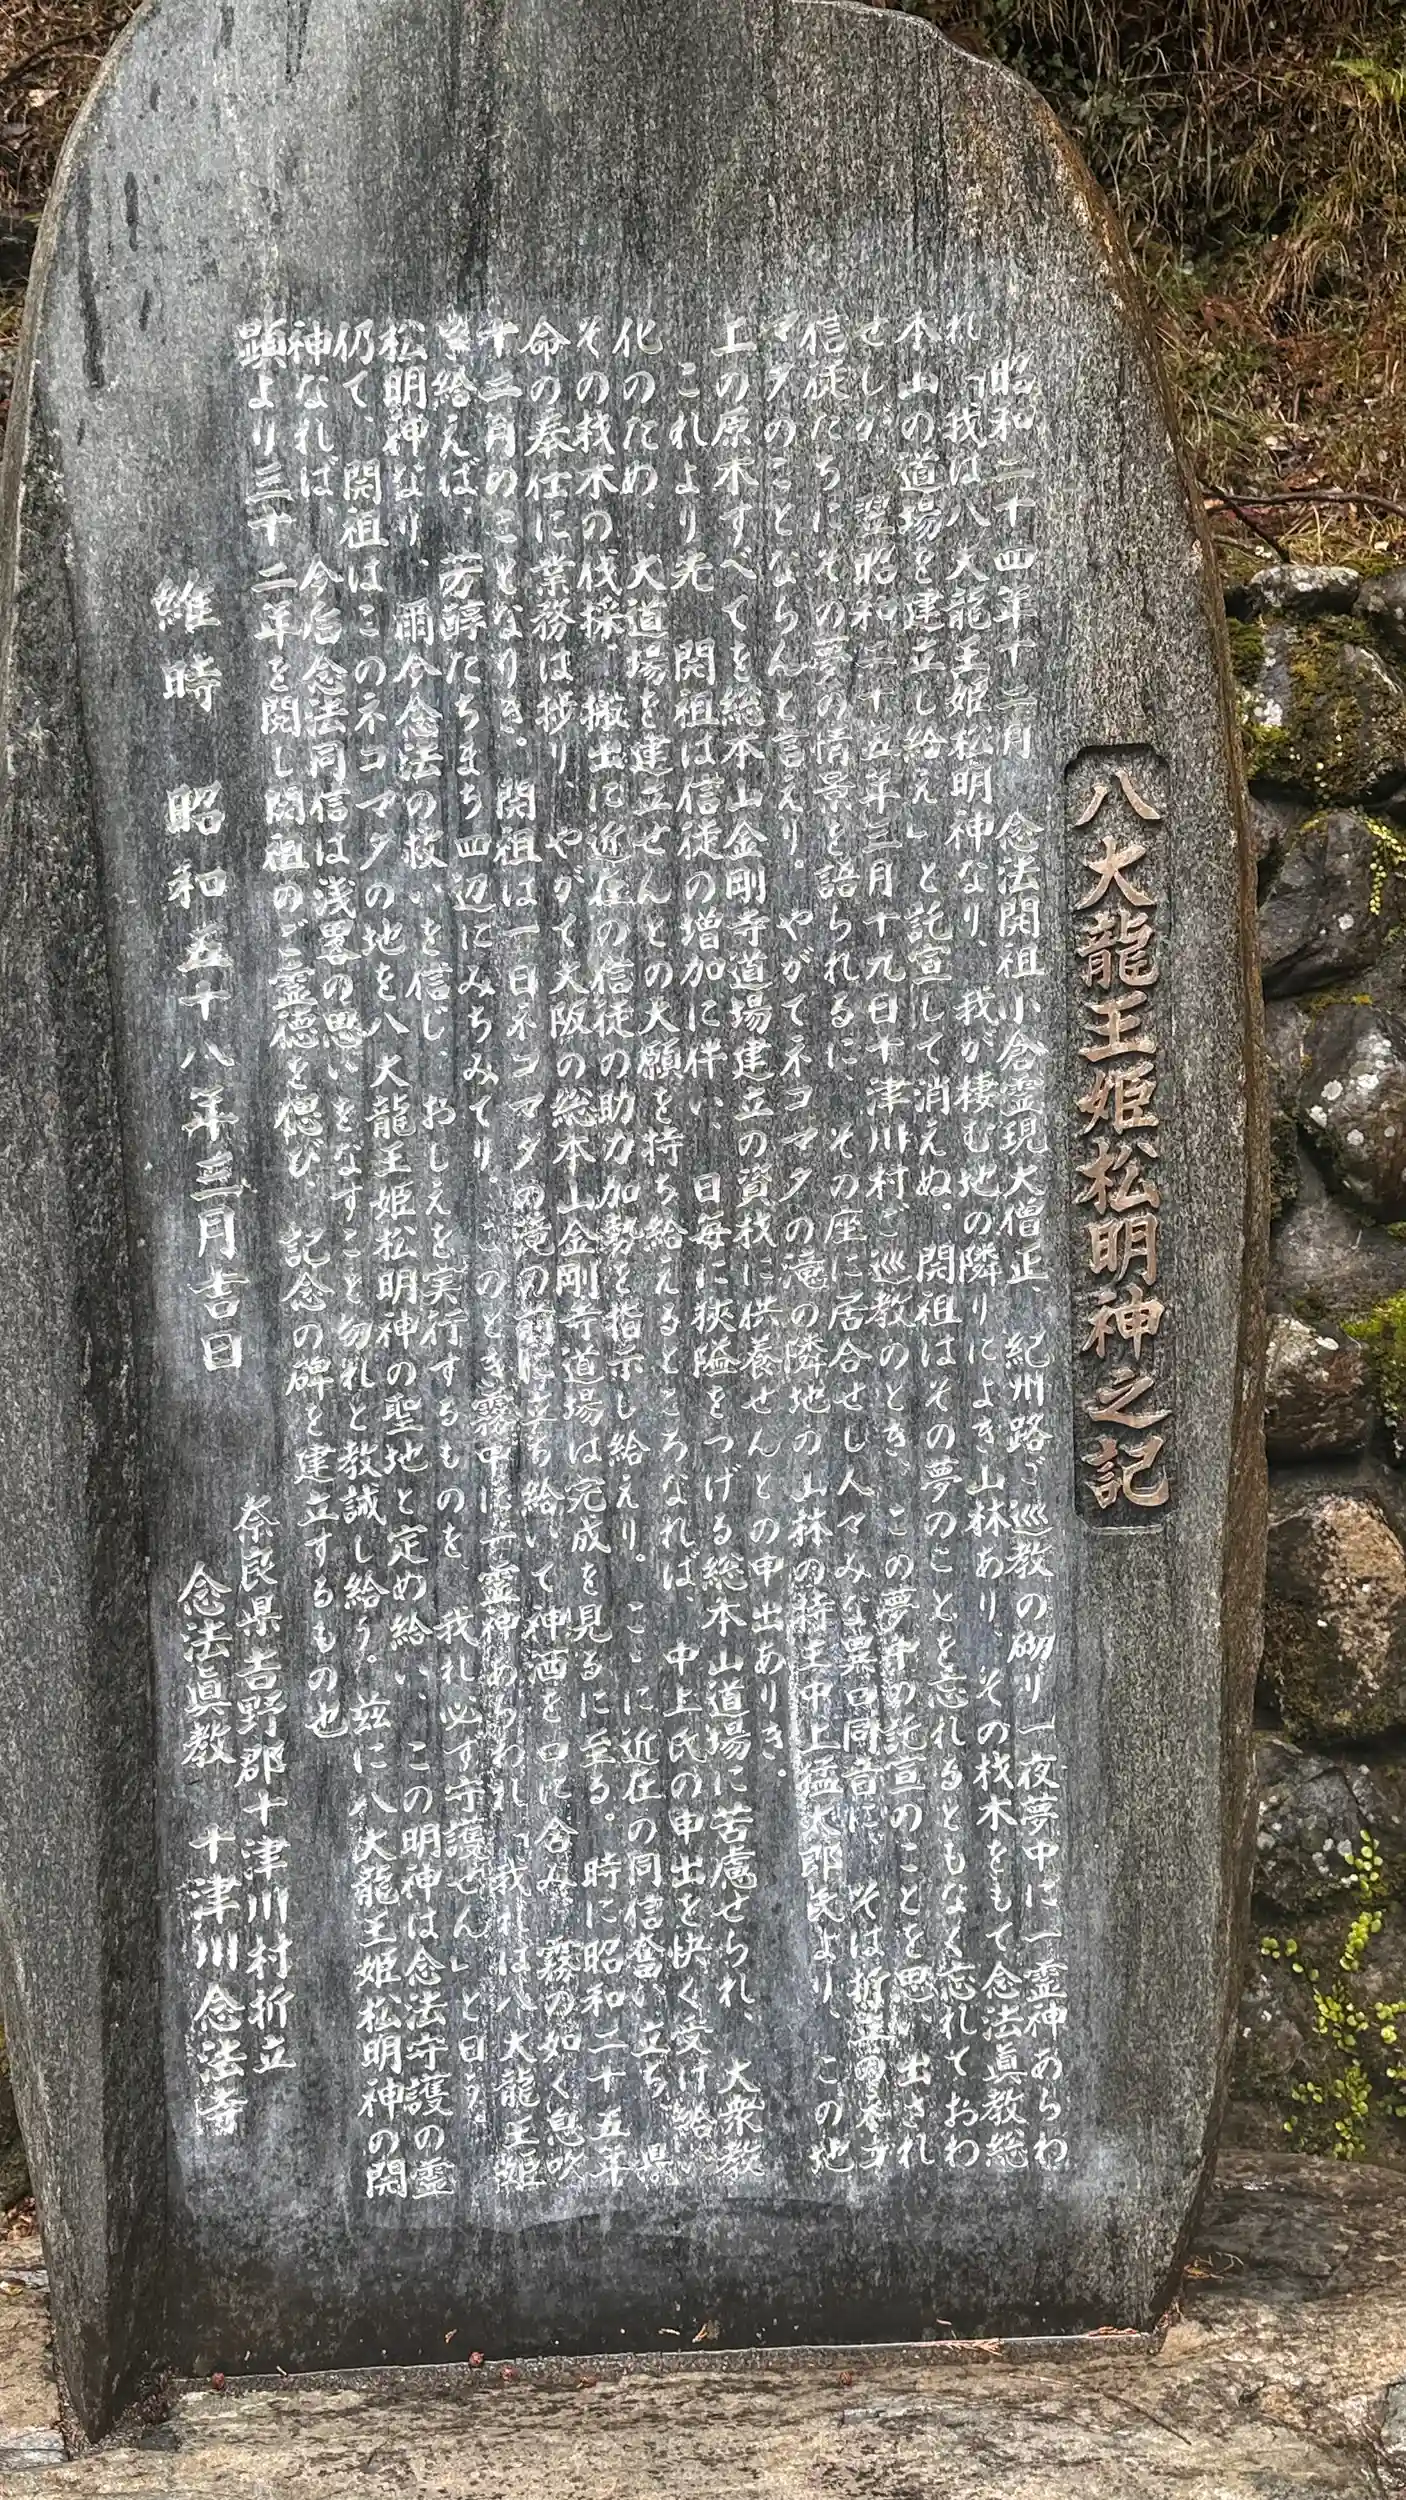 八大龍王姫松明神之記
昭和二十四年十二月 念法開祖小倉霊現大僧正、紀州路ご巡教の砌り一夜夢中に一霊神あらわ
れ「我は八大龍王姫松明神なり、我が棲む地の隣りによき山林あり、その材木をもて念法眞教総
本山の道場を建立し給え」と託宣して消えぬ。開祖はその夢のことを忘れるともなく忘れておわ
せしが、翌昭和二十五年三月十九日十津川村ご巡教のとき、この夢中の託宣のことを思い出され
信徒たちにその夢の情景を語られるに、その座に居合せし人々みな異口同音に、そは折立のネコ
マタのことならんと言えり。やがてネコマタの滝の隣地の山林の持主中上猛太郎氏より、この地
上の原木すべてを総本山金剛寺道場建立の資材に供養せんとの申出ありき。
これより先 開祖は信徒の増加に伴い、日毎に狭隘をつげる総本山道場に苦慮せられ、大衆教
化のため、大道場を建立せんとの大願を持ち給えるところなれば、中上氏の申出を快く受け給い
その材木の伐採、搬出に近在の信徒の助力加勢を指示し給えり。ここに近在の同信奮い立ち、
命の奉仕に業務は捗り、やがて大阪の総本山金剛寺道場は完成を見るに至る。時に昭和二十五年
十二月のことなりき。開祖は一日ネコマタの滝の前に立ち給いて神酒を口に含み、霧の如く息吹
き給えば、芳醇たちまち四辺にみちみてり。このとき霧中に一霊神あらわれ「我れは八大龍王姫
松明神なり、爾今念法の救いを信じ、おしえを実行するものを、我れ必ず守護せん」と曰う。
仍て、開祖はこのネコマタの地を八大龍王姫松明神の聖地と定め給い、この明神は念法守護の霊
神なれば、今后念法同信は浅畧の思いをなすこと勿れと教誡し給う。茲に八大龍王姫松明神の開
顕より三十二年を閲し開祖のご霊徳を偲び、記念の碑を建立するもの也
維時 昭和五十八年三月吉日
奈良県吉野郡十津川村折立
念法眞教 十津川念法寺